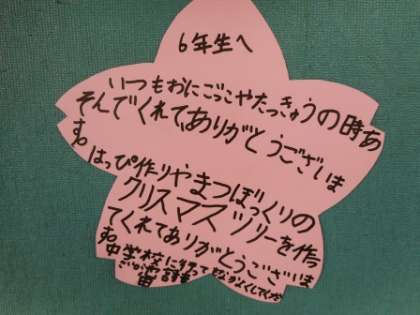 6年生へ
いつもおにごっこやたっきゅうの時あ
そんでくれて、ありがとうございま
す。
はっぴ作りやまつぼっくりの
クリスマスツリーを作っ
てくれてありがとうございま
す。
中学校に行って